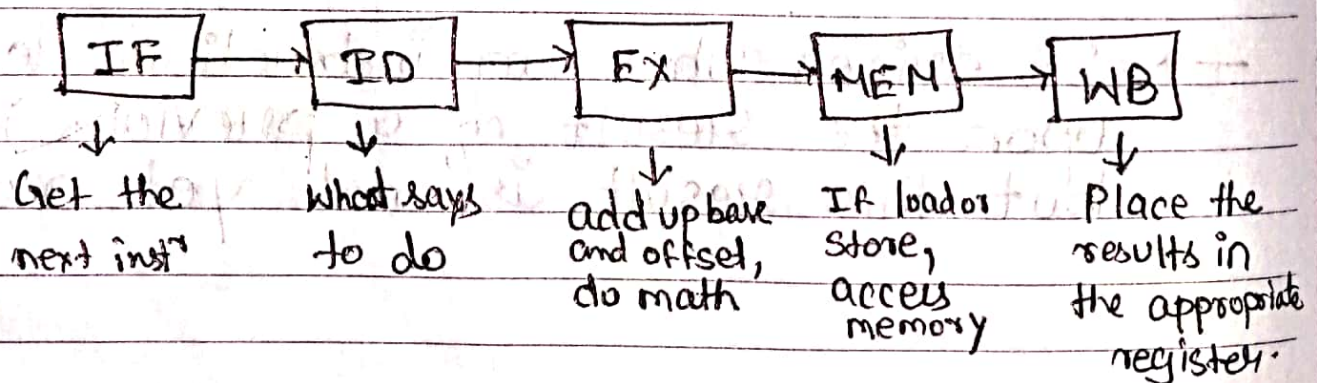 IF ID EX MEM WB
Get the
next instⁿ
what says
to do
add up base
and offset,
do math
If load or
store,
access
memory
Place the
results in
the appropriate
register.